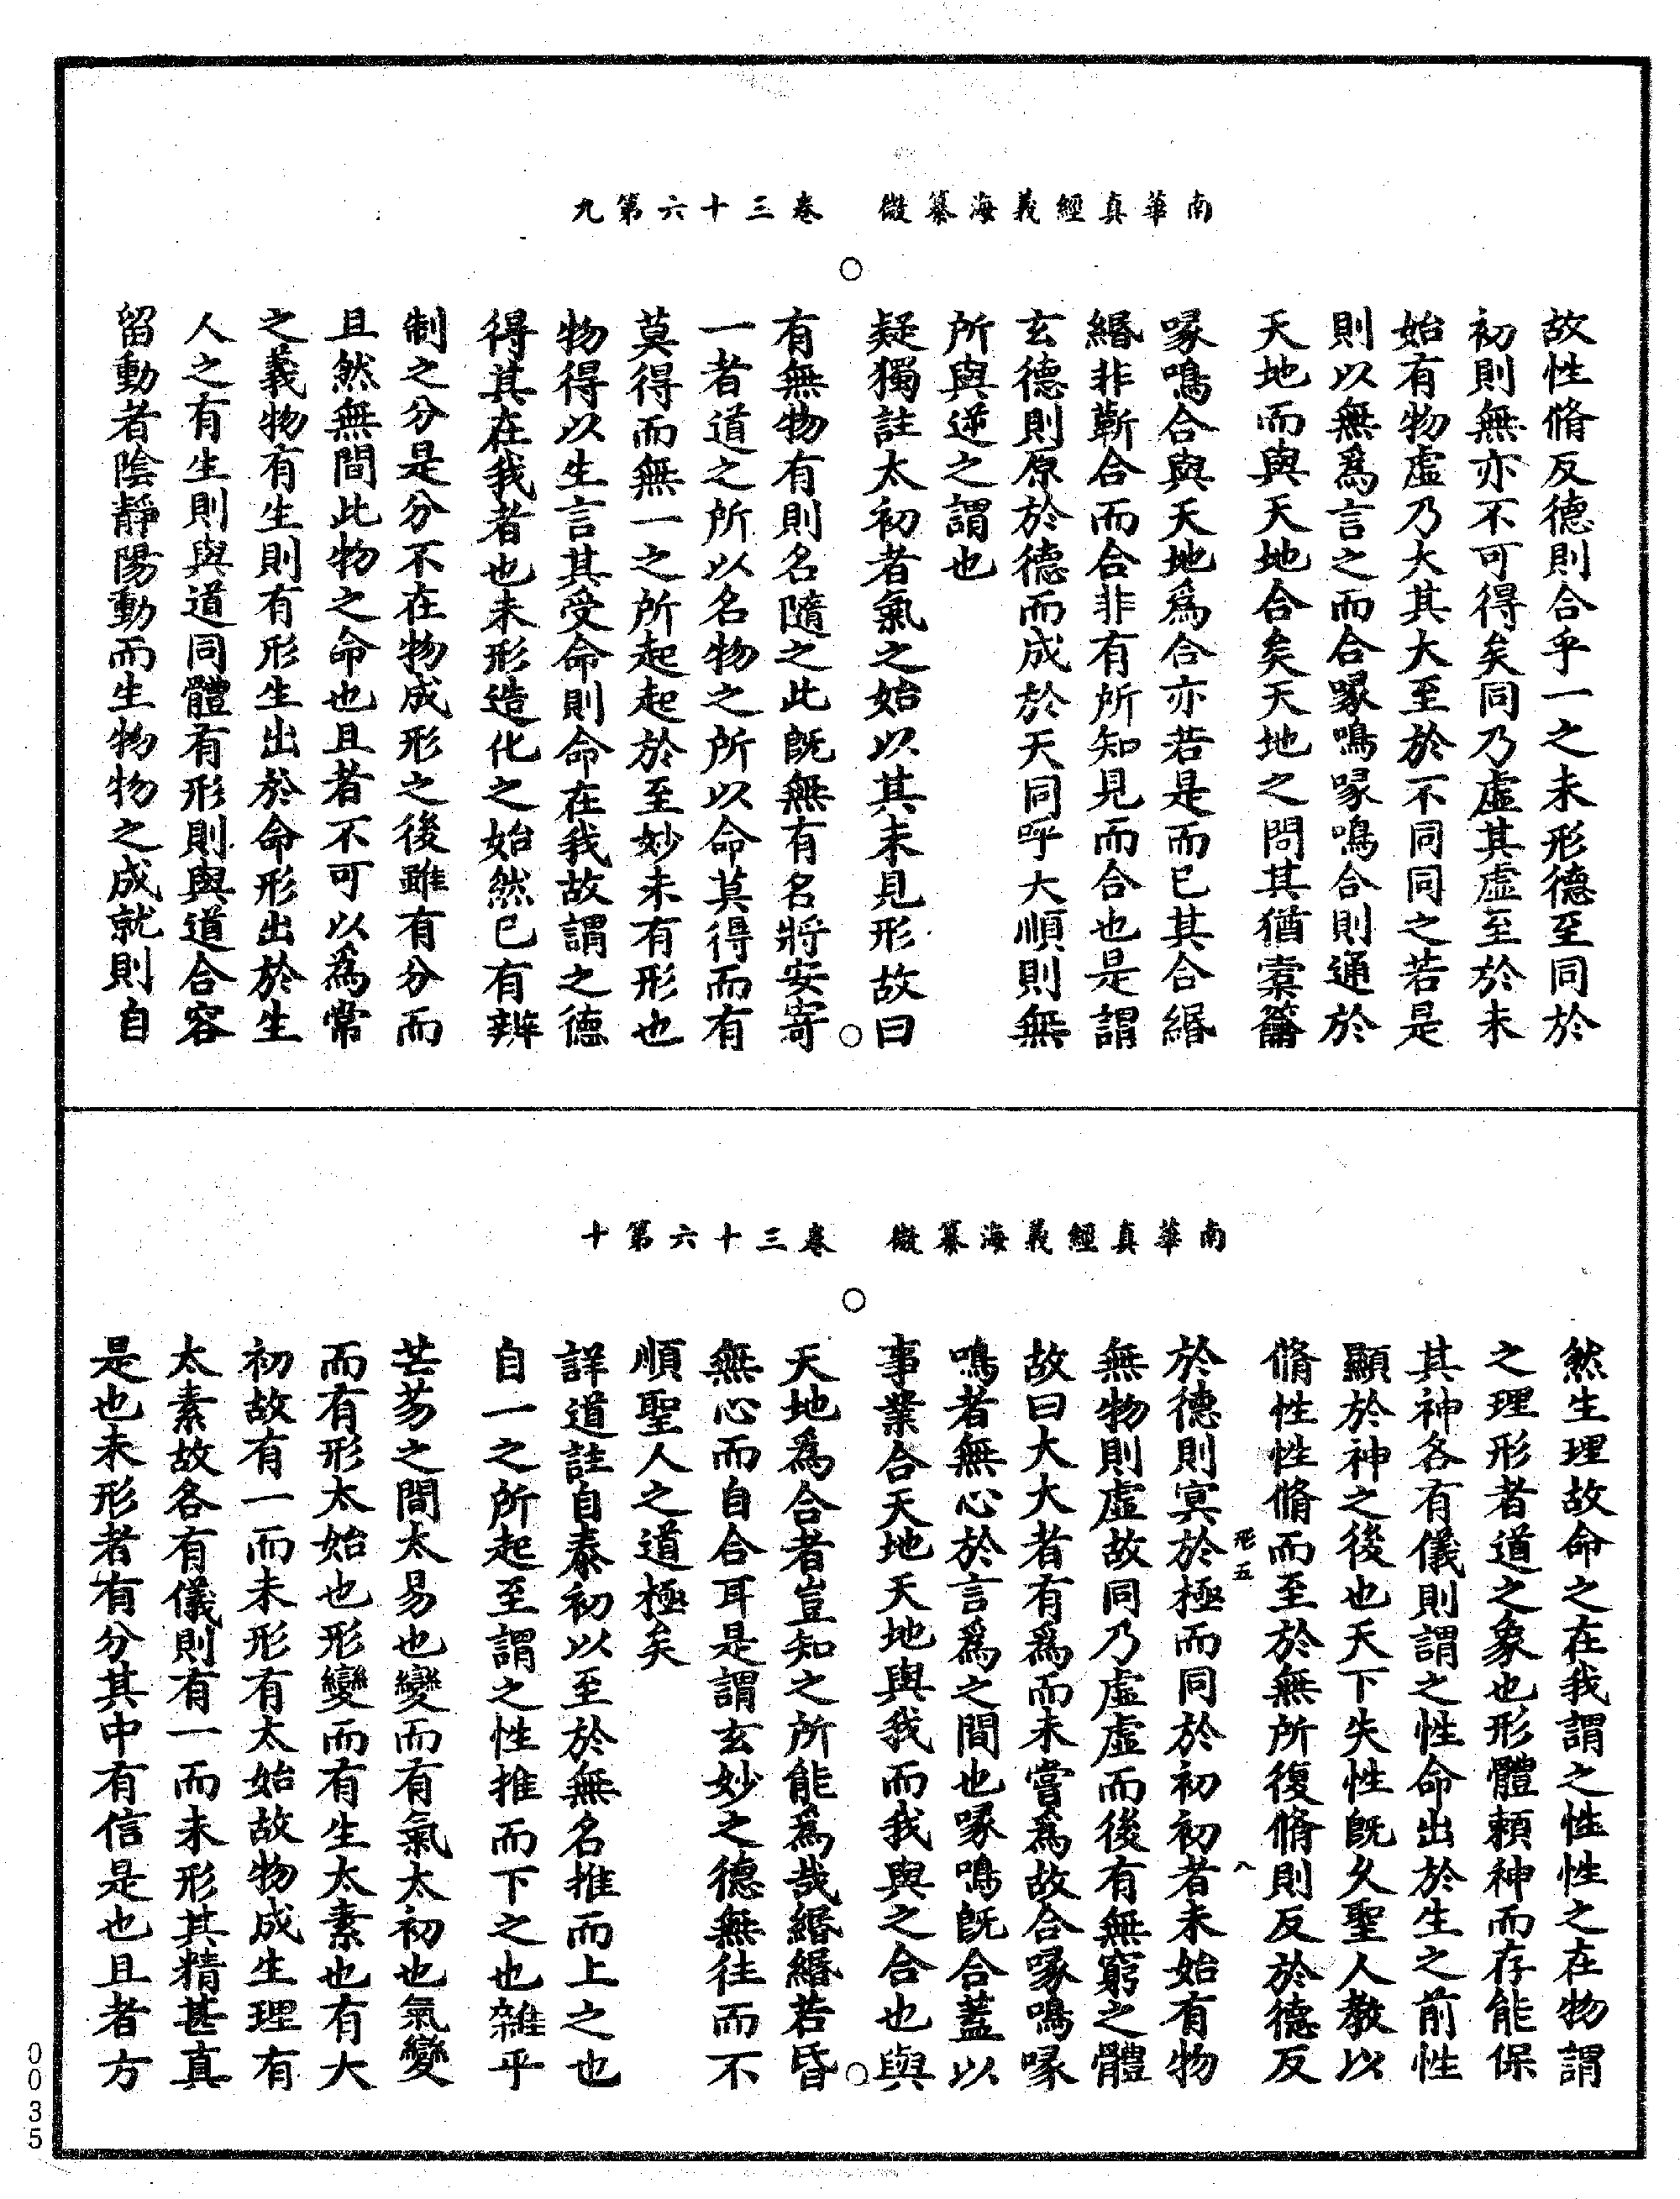 南華真經義海纂微　卷三十六第九
故性脩反德則合乎一之未形德至同於
初則無亦不可得矣同乃虛其虛至於未
始有物虛乃大其大至於不同同之若是
則以無爲言之而合喙鳴喙鳴合則通於
天地而與天地合矣天地之間其猶橐籥
喙鳴合與天地爲合亦若是而已其合緡
緡非蘄合而合非有所知見而合也是謂
玄德則原於德而成於天同呼大順則無
所與逆之謂也
疑獨註太初者氣之始以其未見形故曰
有無物有則名隨之此旣無有名將安寄
一者道之所以名物之所以命莫得而有
莫得而無一之所起起於至妙未有形也
物得以生言其受命則命在我故謂之德
得其在我者也未形造化之始然已有辨
制之分是分不在物成形之後雖有分而
且然無間此物之命也且者不可以為常
之義物有生則有形生出於命形出於生
人之有生則與道同體有形則與道合容
留動者陰靜陽動而生物物之成就則自
南華真經義海纂微　卷三十六第十
然生理故命之在我謂之性性之在物謂
之理形者道之象也形體賴神而存能保
其神各有儀則謂之性命出於生之前性
顯於神之後也天下失性旣久聖人教以
脩性性脩而至於無所復脩則反於德反
於德則冥於極而同於初初者未始有物
無物則虛故同乃虛虛而後有無窮之體
故曰大大者有爲而未嘗爲故合喙鳴喙
鳴者無心於言爲之間也喙鳴旣合蓋以
事業合天地天地與我而我與之合也與
天地爲合者豈知之所能爲哉緡緡若昏
無心而自合耳是謂玄妙之德無往而不
順聖人之道極矣
詳道註自泰初以至於無名推而上之也
自一之所起至謂之性推而下之也雜乎
芒芴之間太易也變而有氣太初也氣變
而有形太始也形變而有生太素也有大
初故有一而未形有太始故物成生理有
太素故各有儀則有一而未形其精甚真
是也未形者有分其中有信是也且者方
五
八
0035